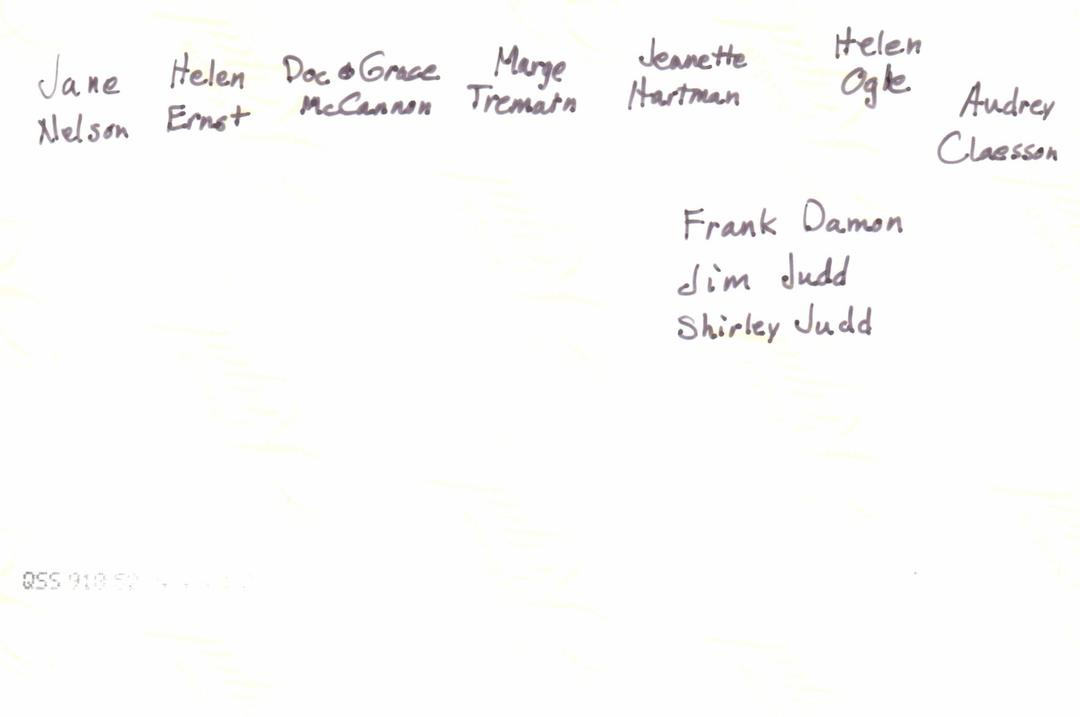 Jane
Nelson
Helen
Ernst
Doc & Grace
McCannon
Marge
Trematn
Jeannette
Hartman
Helen
Ogle
Audrey
Claesson
Frank Damon
Jim Judd
Shirley Judd
QSS 910